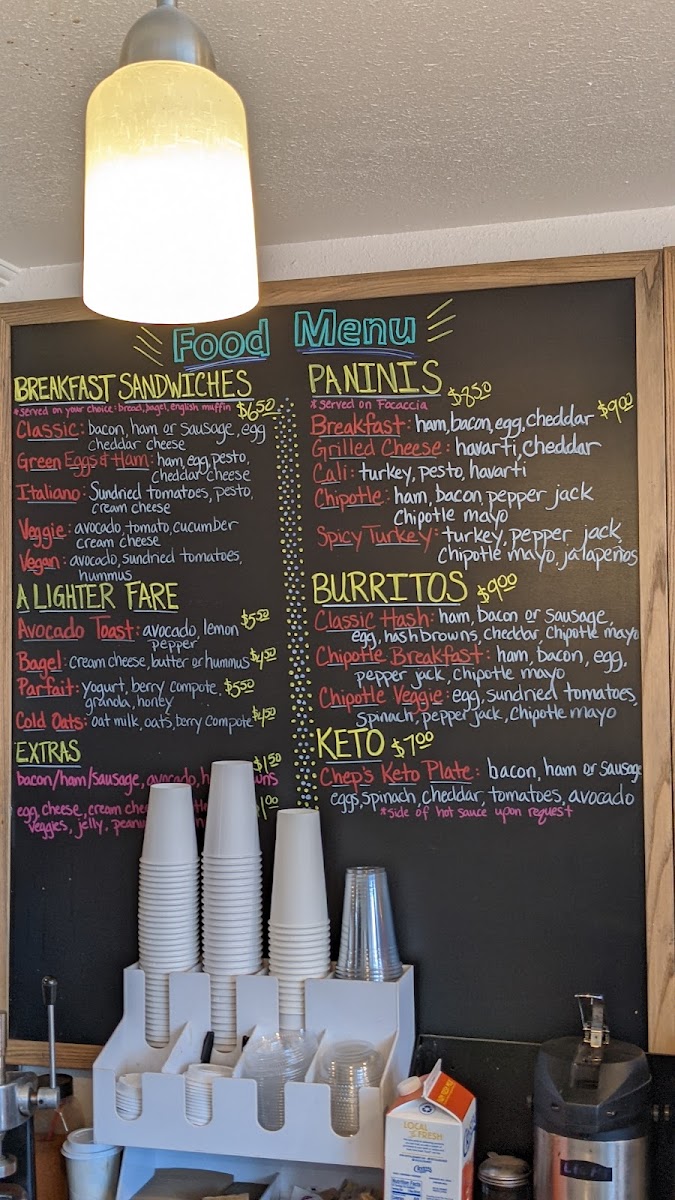 Food Menu
BREAKFAST SANDWICHES
*served on your choice: bread, bagel, english muffin $6.50
Classic: bacon, ham or sausage, egg
cheddar cheese
Green Eggs & Ham: ham, egg, pesto,
cheddar cheese
Italiano: Sundried tomatoes, pesto,
cream cheese
Veggie: avocado, tomato, cucumber
cream cheese
Vegan: avocado, sundried tomatoes,
hummus
A LIGHTER FARE
Avocado Toast: avocado, lemon $5.50
pepper
Bagel: cream cheese, butter or hummus $4.50
Parfait: yogurt, berry compote, $5.50
granola, honey
Cold Oats: oat milk, oats, berry compote $4.50
EXTRAS
$1.50
bacon/ham/sausage, avocado,
egg, cheese, cream $1.00
veggies, jelly,
PANINIS $8.50
*served on Focaccia
Breakfast: ham, bacon, egg, cheddar $9.00
Grilled Cheese: havarti, cheddar
Cali: turkey, pesto, havarti
Chipotle: ham, bacon pepper jack
Chipotle mayo
Spicy Turkey: turkey, pepper jack,
Chipotle mayo, jalapeños
BURRITOS $9.00
Classic Hash: ham, bacon or sausage,
egg, hashbrowns, cheddar, chipotle mayo
Chipotle Breakfast: ham, bacon, egg,
pepper jack, chipotle mayo
Chipotle Veggie: egg, sundried tomatoes,
spinach, pepper jack, Chipotle mayo
KETO $7.00
Chep's Keto Plate: bacon, ham or sausage
eggs, spinach, cheddar, tomatoes, avocado
*side of hot sauce upon request
LOCAL
FRESH
Nutrition Facts